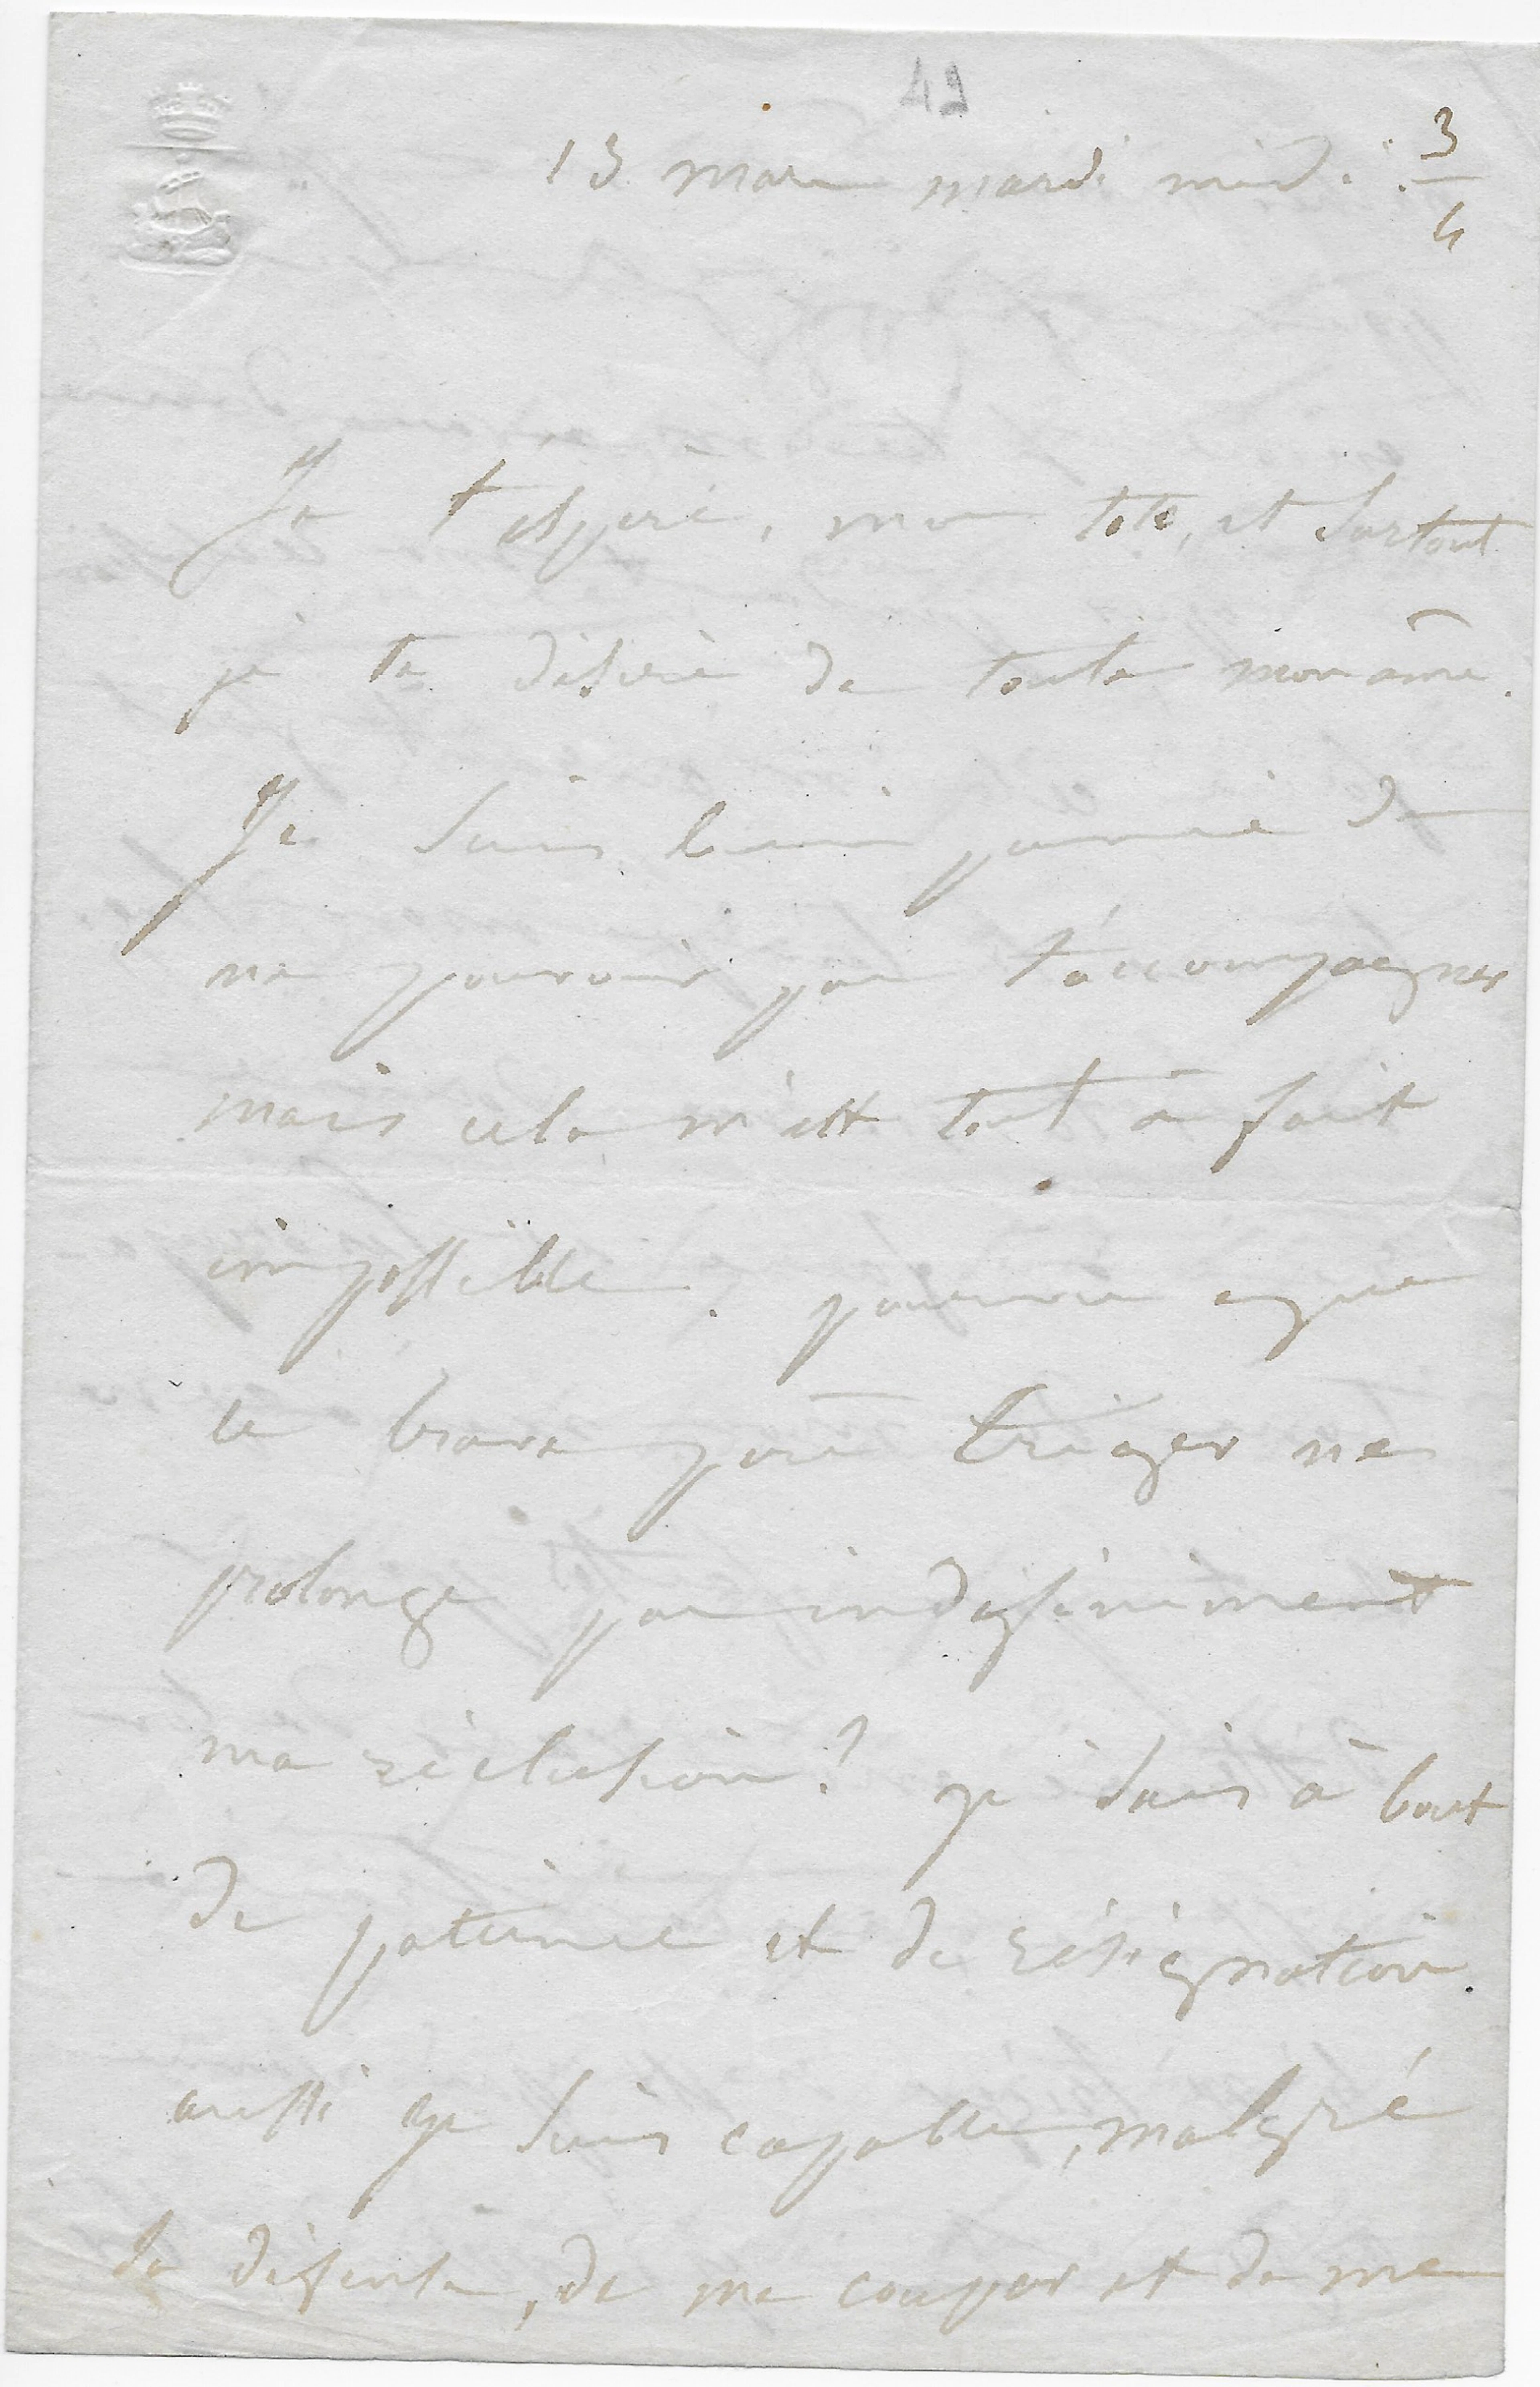 49
13 mars mardi midi 3/4
Je t'espère, mon toto, et surtout
je te désire de toute mon âme.
Je suis bien punie de
ne pouvoir pas t'accompagner
mais cela m'est tout à fait
impossible. pourvu que
le brave père triger ne
prolonge pas indéfiniment
ma réclusion? je suis à bout
de patience et de résignation.
aussi je suis capable, malgré
sa défense, de me couper et de me